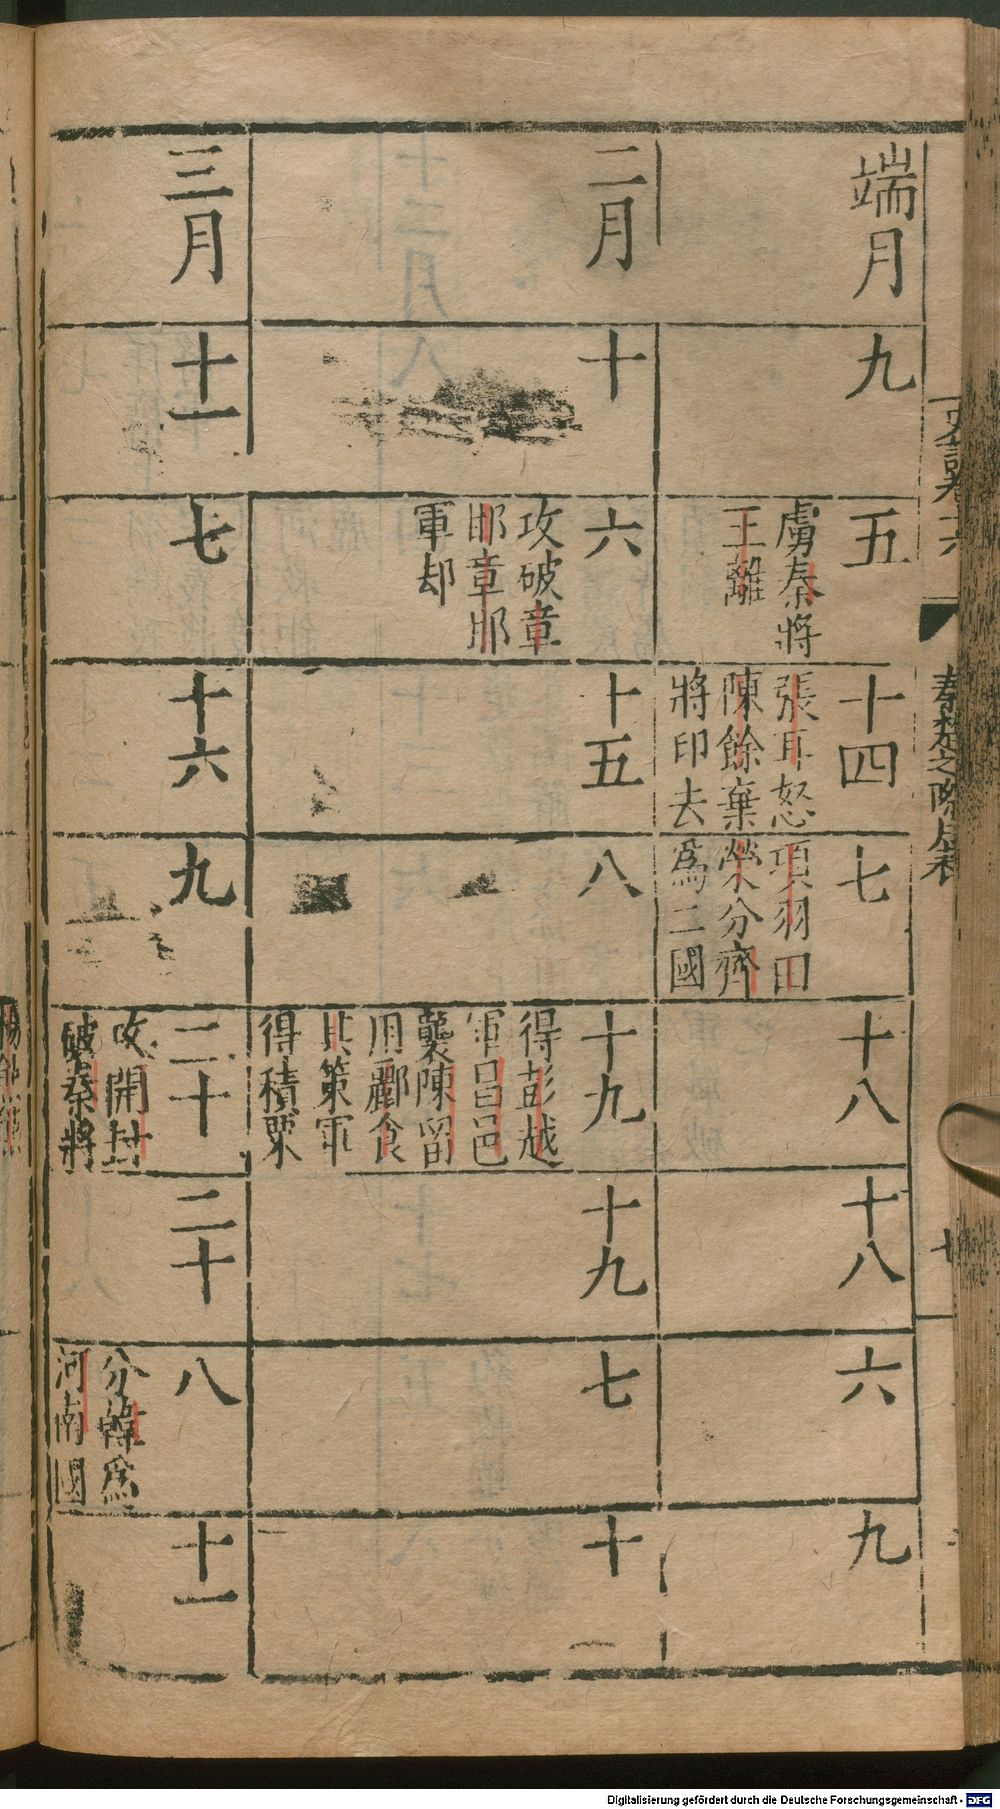 史記卷六
秦楚之際月表
端月
九
五
虜秦將
王離
十四
張耳怒
陳餘棄
將印去
七
項羽田
榮分齊
爲二國
十八
十八
六
九
二月
十
六
攻破章
邯章邯
軍却
十五
八
十九
得彭越
軍昌邑
襲陳留
用酈食
其策軍
得積粟
十九
七
十
三月
十一
七
十六
九
二十
攻開封
破秦將
二十
八
分韓爲
河南國
十一
楊熊熊
Digitalisierung gefördert durch die Deutsche Forschungsgemeinschaft - DFG